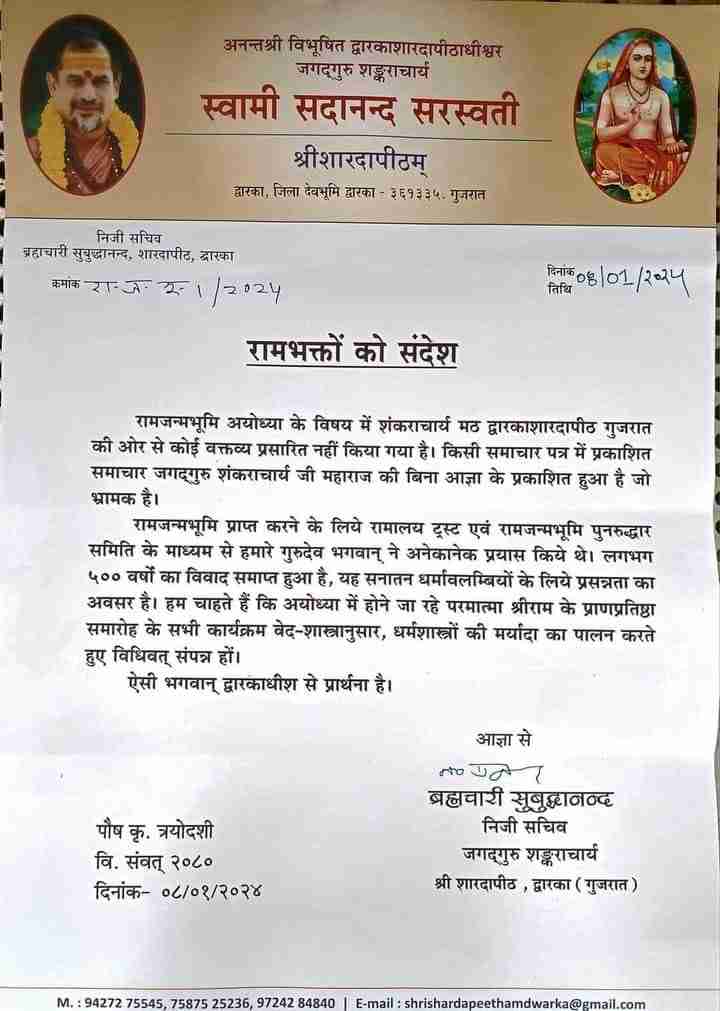 अनन्तश्री विभूषित द्वारकाशारदापीठाधीश्वर
जगद्गुरु शङ्कराचार्य
स्वामी सदानन्द सरस्वती
श्रीशारदापीठम्
द्वारका, जिला देवभूमि द्वारका - ३६१३३५. गुजरात
निजी सचिव
ब्रह्मचारी सुबुद्धानन्द, शारदापीठ, द्वारका
क्रमांक रा.ज. 1/2024
दिनांक 08/01/2024
तिथि
रामभक्तों को संदेश
रामजन्मभूमि अयोध्या के विषय में शंकराचार्य मठ द्वारकाशारदापीठ गुजरात
की ओर से कोई वक्तव्य प्रसारित नहीं किया गया है। किसी समाचार पत्र में प्रकाशित
समाचार जगद्गुरु शंकराचार्य जी महाराज की बिना आज्ञा के प्रकाशित हुआ है जो
भ्रामक है।
रामजन्मभूमि प्राप्त करने के लिये रामालय ट्रस्ट एवं रामजन्मभूमि पुनरुद्धार
समिति के माध्यम से हमारे गुरुदेव भगवान् ने अनेकानेक प्रयास किये थे। लगभग
५०० वर्षों का विवाद समाप्त हुआ है, यह सनातन धर्मावलम्बियों के लिये प्रसन्नता का
अवसर है। हम चाहते हैं कि अयोध्या में होने जा रहे परमात्मा श्रीराम के प्राणप्रतिष्ठा
समारोह के सभी कार्यक्रम वेद-शास्त्रानुसार, धर्मशास्त्रों की मर्यादा का पालन करते
हुए विधिवत् संपन्न हों।
ऐसी भगवान् द्वारकाधीश से प्रार्थना है।
आज्ञा से
ब्रह्मचारी सुबुद्धानन्द
निजी सचिव
जगद्गुरु शङ्कराचार्य
श्री शारदापीठ , द्वारका ( गुजरात )
पौष कृ. त्रयोदशी
वि. संवत् २०८०
दिनांक- ०८/०१/२०२४
M. : 94272 75545, 75875 25236, 97242 84840 | E-mail : shrishardapeethamdwarka@gmail.com